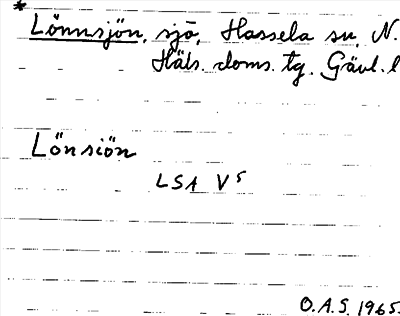 * Lönnsjön, sjö, Hassela sn, N.
Häls. doms. tg. Gävl. l
Lönsiön
LSA V5
O.A.S. 1965.